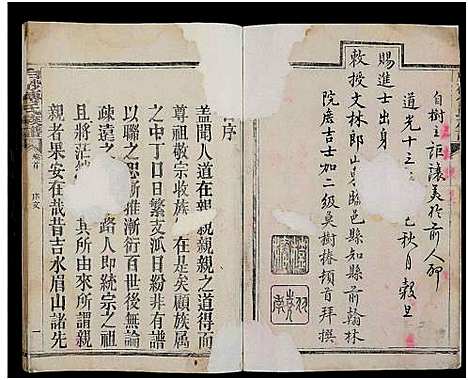 自樹立詎讓美於前人耶
道光十三 己秋月 穀旦
賜進士出身
敕授文林郎山東臨邑縣知縣前翰林
院庶吉士加二級吳樹椿頓首拜撰
序
蓋聞人道在親親親之道得而
尊祖敬宗收族 在是矣顧族屬
之中丁口日繁支派日紛非有譜
以聯之恐漸推漸衍百世後無論
疎遠之 路人即統宗之子
且將茫 其所由來所謂親
親者果安在哉昔吉水眉山諸先
卷首
序文
一